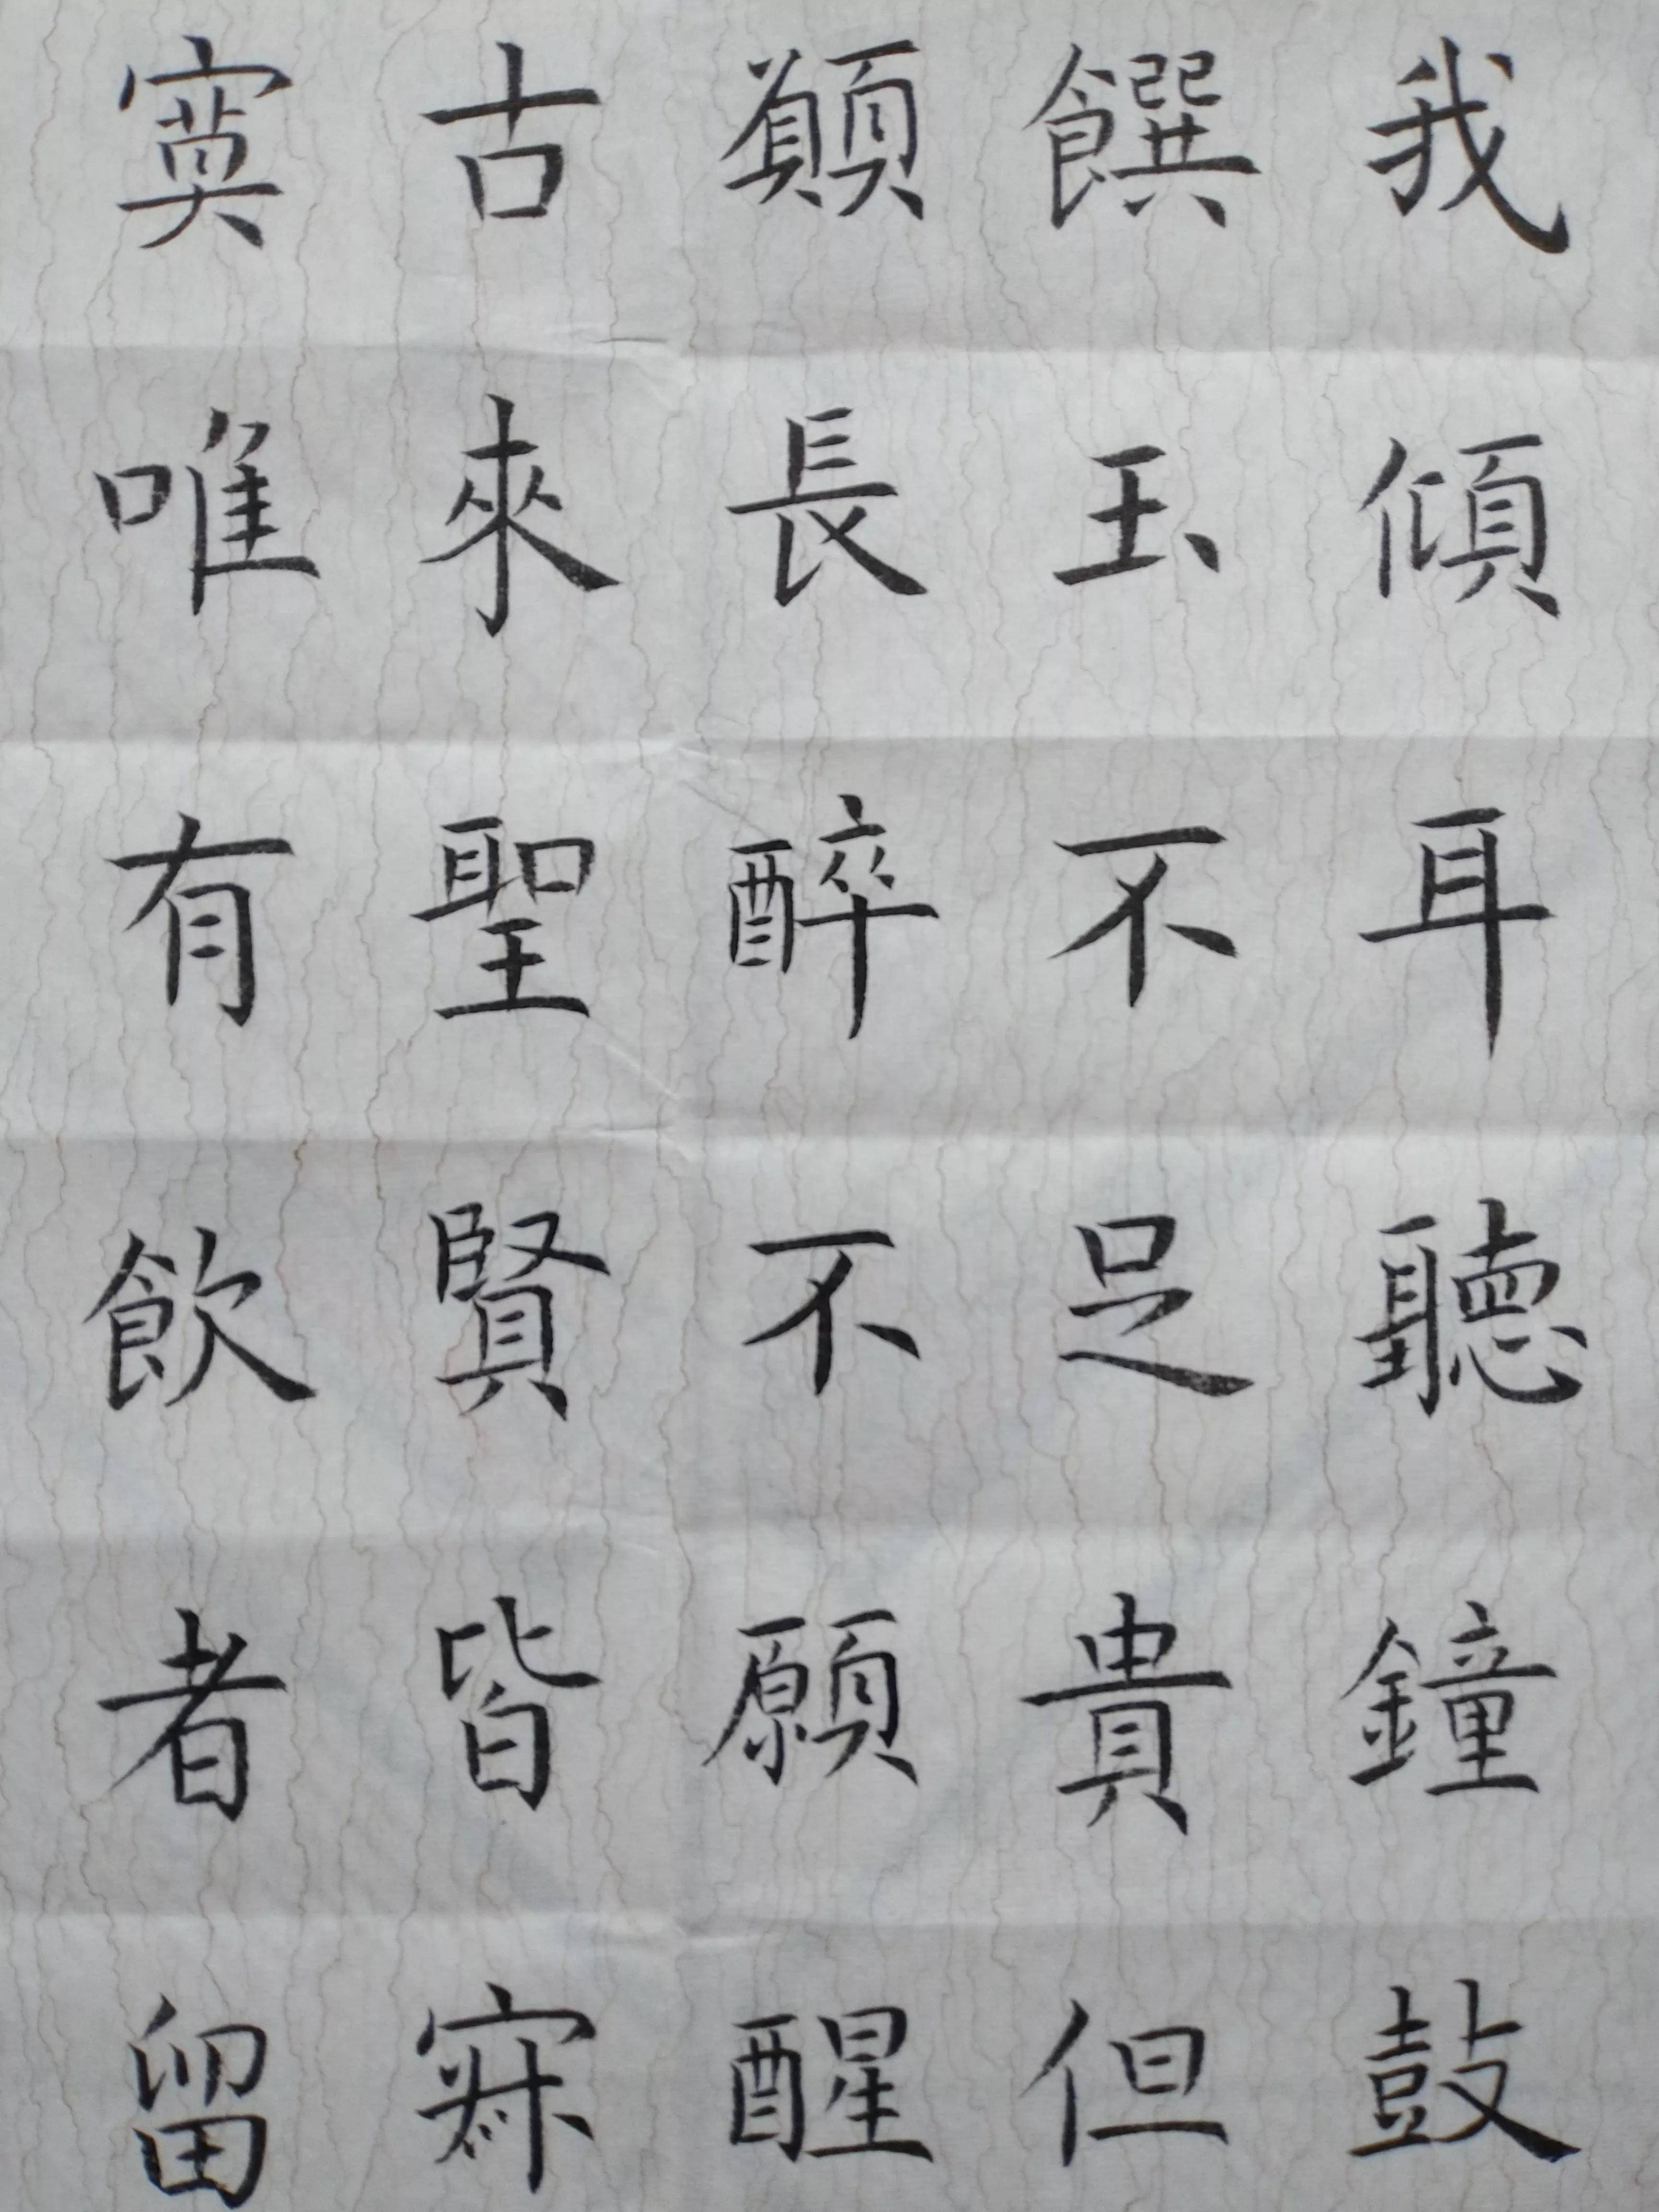 我傾耳聽鐘鼓
饌玉不足貴但
願長醉不願醒
古來聖賢皆寂
寞唯有飲者留